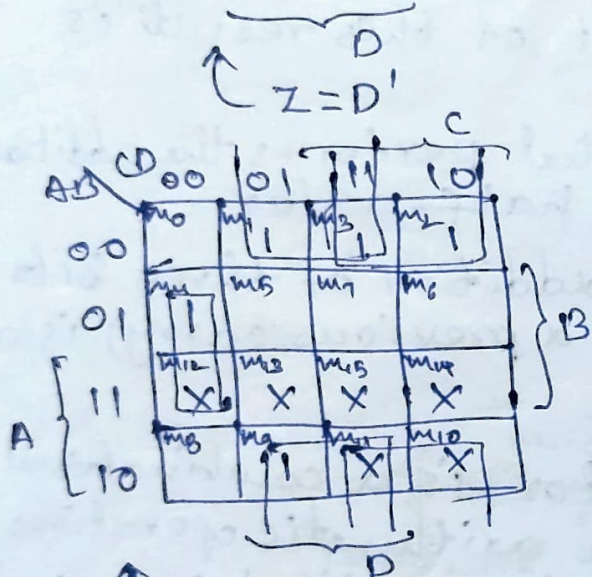 D
Z = D'
C
AB CD 00 01 11 10
00 m0 m1 1 m3 1 m2 1
01 m4 1 m5 m7 m6
B
A 11 m12 X m13 X m15 X m14 X
10 m8 m9 1 m11 X m10 X
D